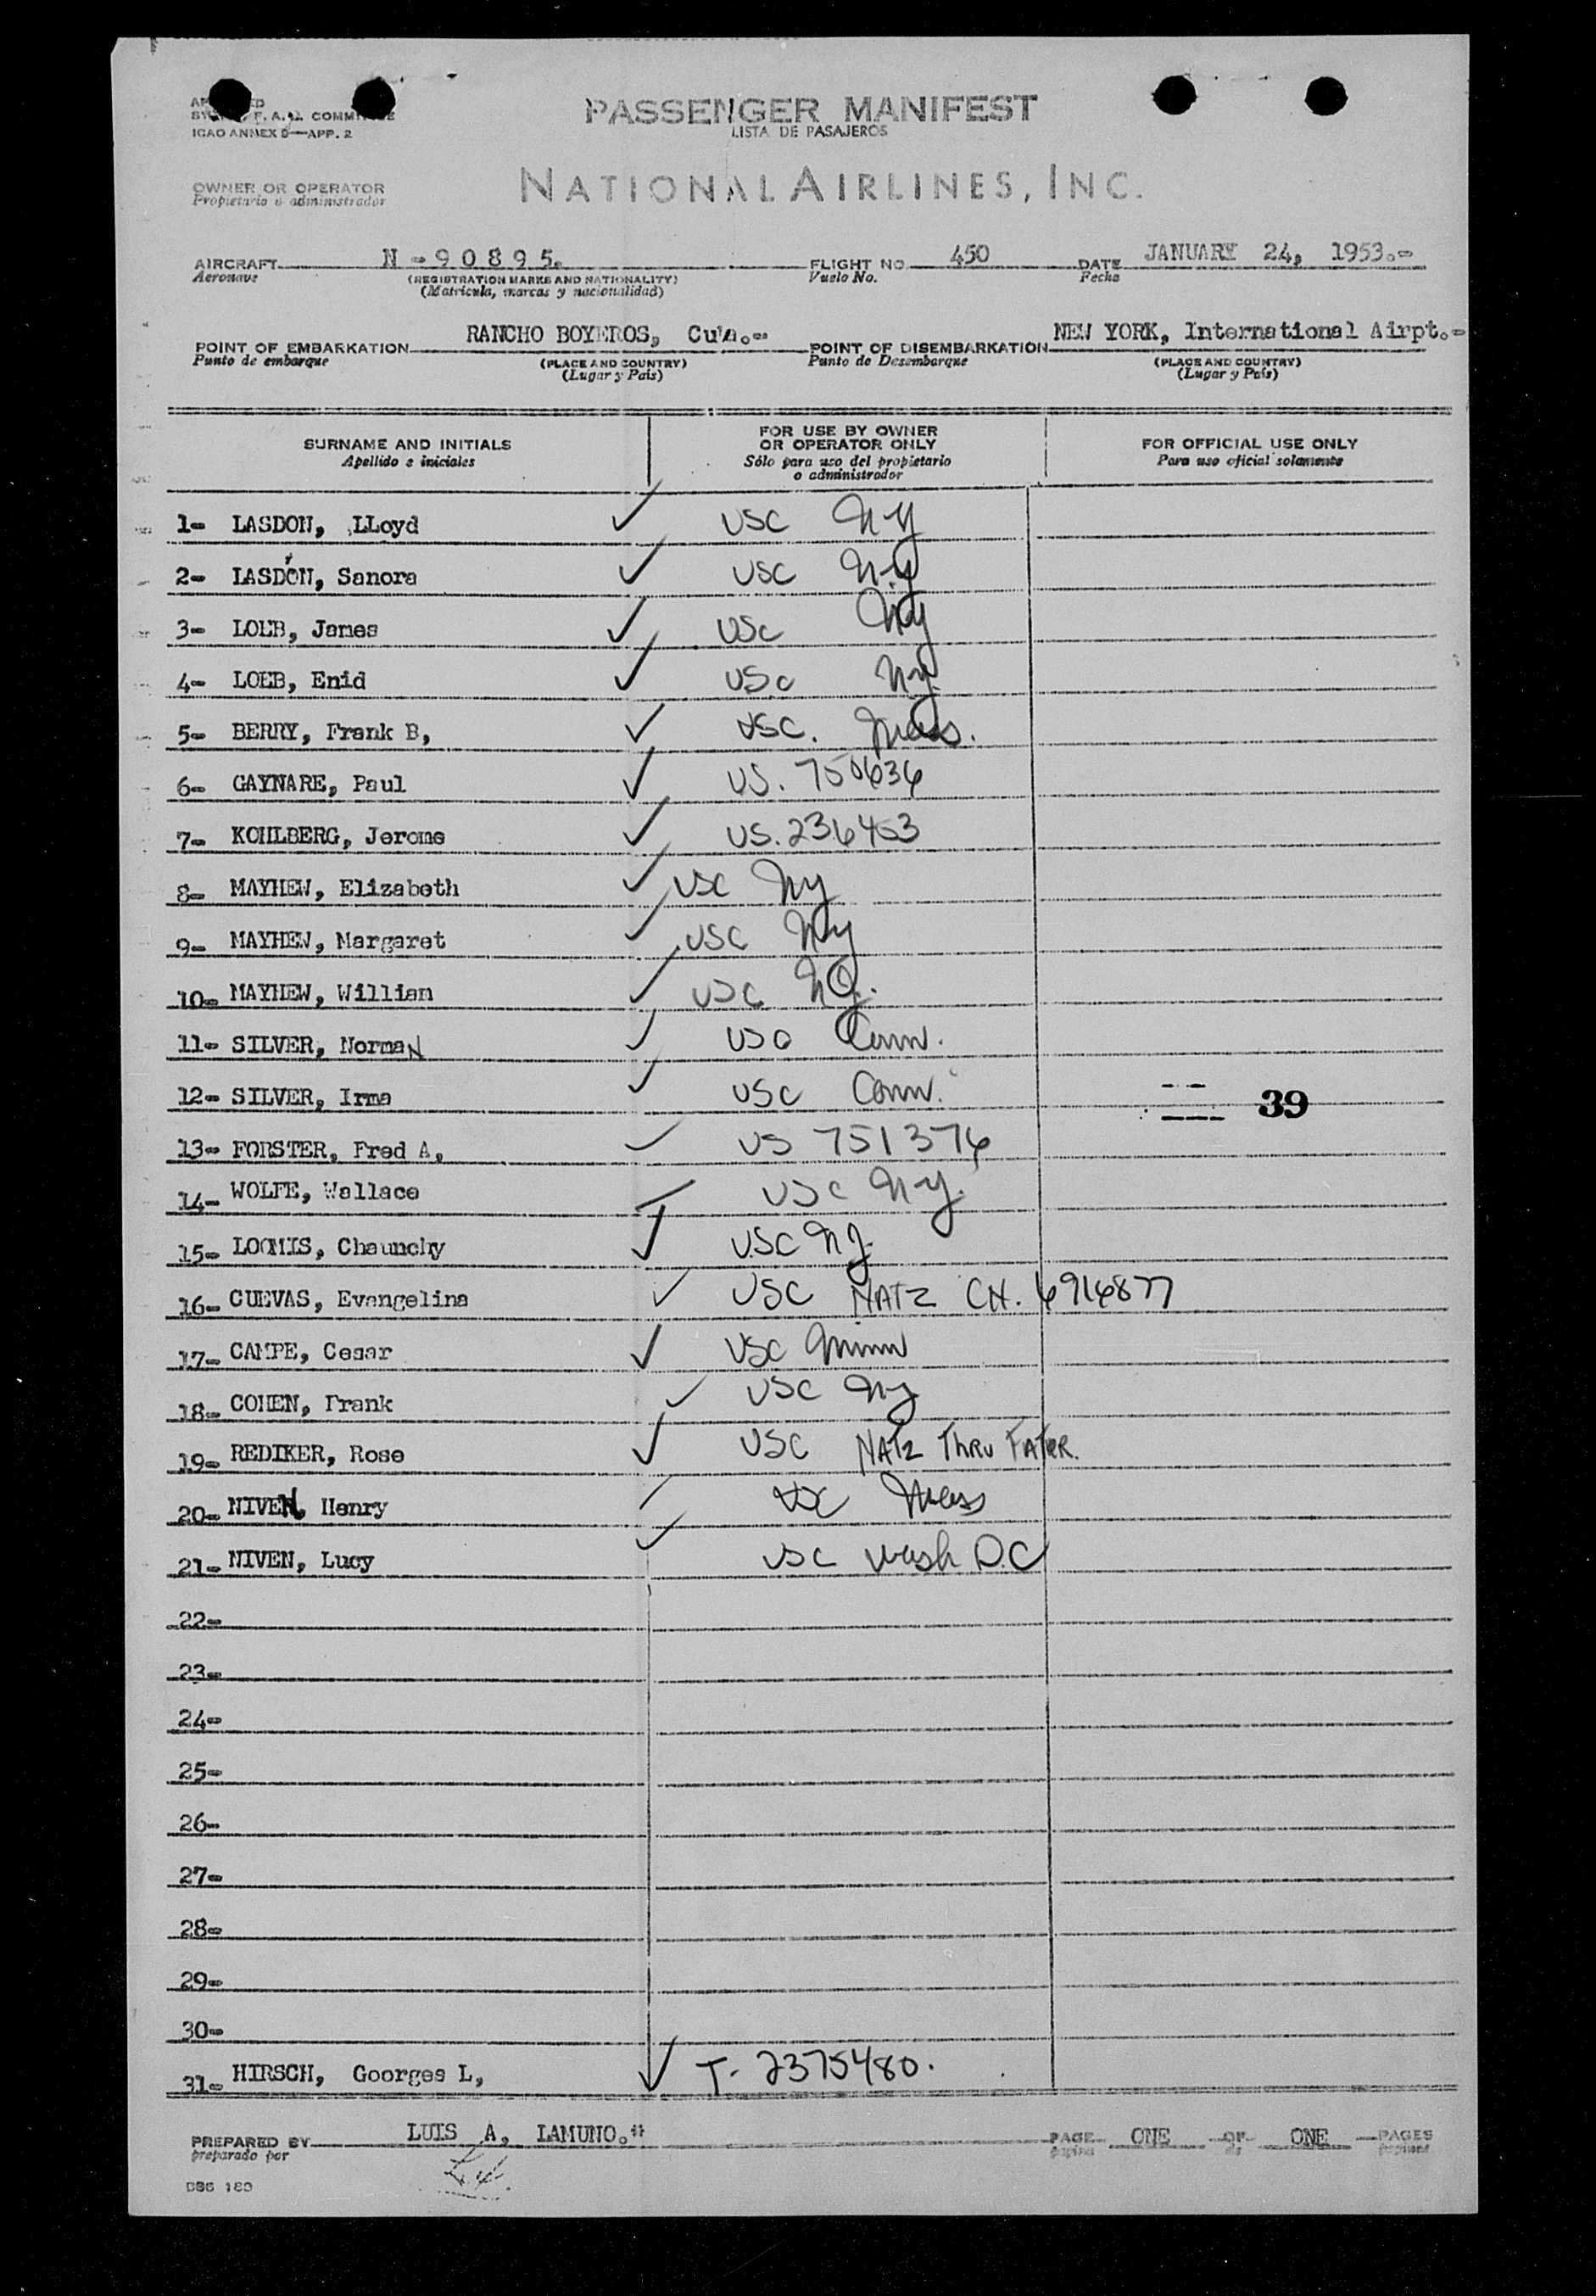 ICAO ANNEX 9—APP. 2
PASSENGER MANIFEST
LISTA DE PASAJEROS
OWNER OR OPERATOR
Propietario o administrador
NATIONAL AIRLINES, INC.
AIRCRAFT N-90895. FLIGHT NO 450 DATE JANUARY 24, 1953.-
Aeronave (REGISTRATION MARKS AND NATIONALITY) Vuelo No. Fecha
(Matrícula, marcas y nacionalidad)
POINT OF EMBARKATION RANCHO BOYEROS, Cuba.- POINT OF DISEMBARKATION NEW YORK, International Airpt.-
Punto de embarque (PLACE AND COUNTRY) Punto de Desembarque (PLACE AND COUNTRY)
(Lugar y País) (Lugar y País)
SURNAME AND INITIALS FOR USE BY OWNER OR OPERATOR ONLY FOR OFFICIAL USE ONLY
Apellido e iniciales Sólo para uso del propietario o administrador Para uso oficial solamente
1- LASDON, LLoyd ✓ USC NY
2- LASDON, Sanora ✓ USC N.Y
3- LOEB, James ✓ USC NY
4- LOEB, Enid ✓ USC NY.
5- BERRY, Frank B, ✓ USC. Mass.
6- GAYNARE, Paul ✓ US. 750636
7- KOHLBERG, Jerome ✓ US. 236453
8- MAYHEW, Elizabeth ✓ USC NY
9- MAYHEW, Margaret ✓ USC NY
10- MAYHEW, William ✓ USC NJ.
11- SILVER, Norman ✓ USC Conn.
12- SILVER, Irma ✓ USC Conn.
39
13- FORSTER, Fred A, ✓ US 751376
14- WOLFE, Wallace ✓ USC N.Y.
15- LOOMIS, Chaunchy ✓ USC NJ.
16- CUEVAS, Evangelina ✓ USC NATZ CH. 6916877
17- CAMPE, Cesar ✓ USC Minn
18- COHEN, Frank ✓ USC NY
19- REDIKER, Rose ✓ USC NATZ THRU FATER.
20- NIVEN, Henry ✓ USC Mass
21- NIVEN, Lucy ✓ USC Wash D.C
22-
23-
24-
25-
26-
27-
28-
29-
30-
31- HIRSCH, Goorges L, ✓ T- 2375480.
PREPARED BY LUIS A, LAMUNO. PAGE ONE OF ONE PAGES
preparado por página de páginas